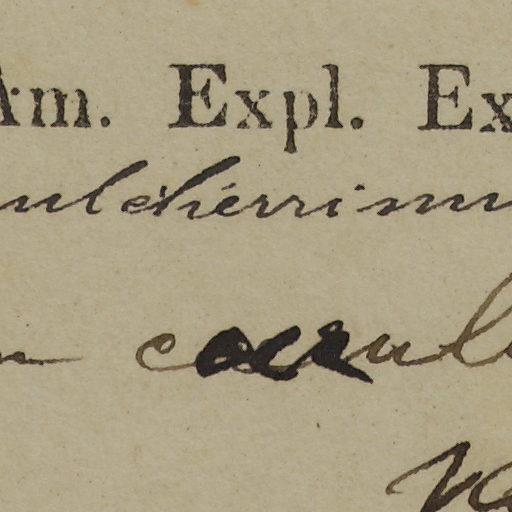 Am. Expl. Ex
ulcherrimu
caerul